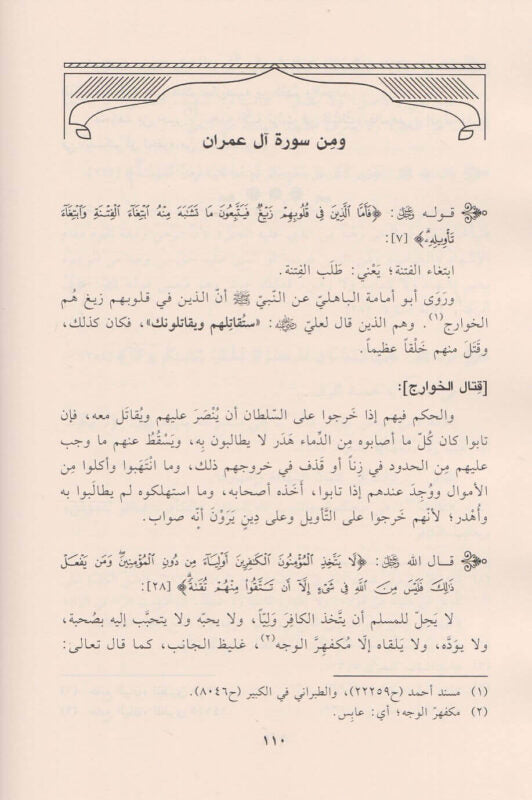 ومِن سورة آل عمران
قـولـه ﷻ: ﴿فَأَمَّا ٱلَّذِينَ فِي قُلُوبِهِمْ زَيْغٌ فَيَتَّبِعُونَ مَا تَشَٰبَهَ مِنْهُ ٱبْتِغَآءَ ٱلْفِتْنَةِ وَٱبْتِغَآءَ
تَأْوِيلِهِۦ﴾ [٧]:
ابتغاء الفتنة؛ يَعْني: طَلَب الفِتنة.
ورَوَى أبو أمامة الباهليّ عن النّبيّ ﷺ أنّ الذين في قلوبهم زيغ هُم
الخوارج(١). وهم الذين قال لعليّ ﵁: «ستُقاتِلهم ويقاتلونك»، فكان كذلك،
وقَتَلَ منهم خَلْقاً عظيماً.
[قِتال الخوارج]:
والحكم فيهم إذا خَرجوا على السّلطان أن يُنْصَرَ عليهم ويُقاتَل معه، فإن
تابوا كان كُلّ ما أصابوه مِن الدِّماء هَدَر لا يطالبون بِه، ويَسْقُطُ عنهم ما وجب
عليهم مِن الحدود في زِناً أو قذف في خروجهم ذلك، وما انْتَهَبوا وأكلوا مِن
الأموال ووُجِدَ عندهم إذا تابوا، أَخَذه أصحابه، وما استهلكوه لم يطالَبوا به
وأُهْدر؛ لأنّهم خَرجوا على التَّأويل وعلى دِينٍ يَرَوْنَ أنّه صواب.
قـال الله ﷻ: ﴿لَّا يَتَّخِذِ ٱلْمُؤْمِنُونَ ٱلْكَٰفِرِينَ أَوْلِيَآءَ مِن دُونِ ٱلْمُؤْمِنِينَۖ وَمَن يَفْعَلْ
ذَٰلِكَ فَلَيْسَ مِنَ ٱللَّهِ فِي شَيْءٍ إِلَّآ أَن تَتَّقُوا۟ مِنْهُمْ تُقَىٰةً﴾ [٢٨]:
لا يَحِلّ للمسلم أن يتَّخذ الكافِرَ وَلِيّاً، ولا يحبّه ولا يتحبَّب إليه بصُحبة،
ولا يوَدَّه، ولا يَلقاه إلّا مُكفهِرَّ الوجه(٢)، غليظ الجانب، كما قال تعالى:
(١) مسند أحمد (ح٢٢٢٥٩)، والطبراني في الكبير (ح٨٠٤٦).
(٢) مكفهرّ الوجه؛ أي: عابِس.
١١٠